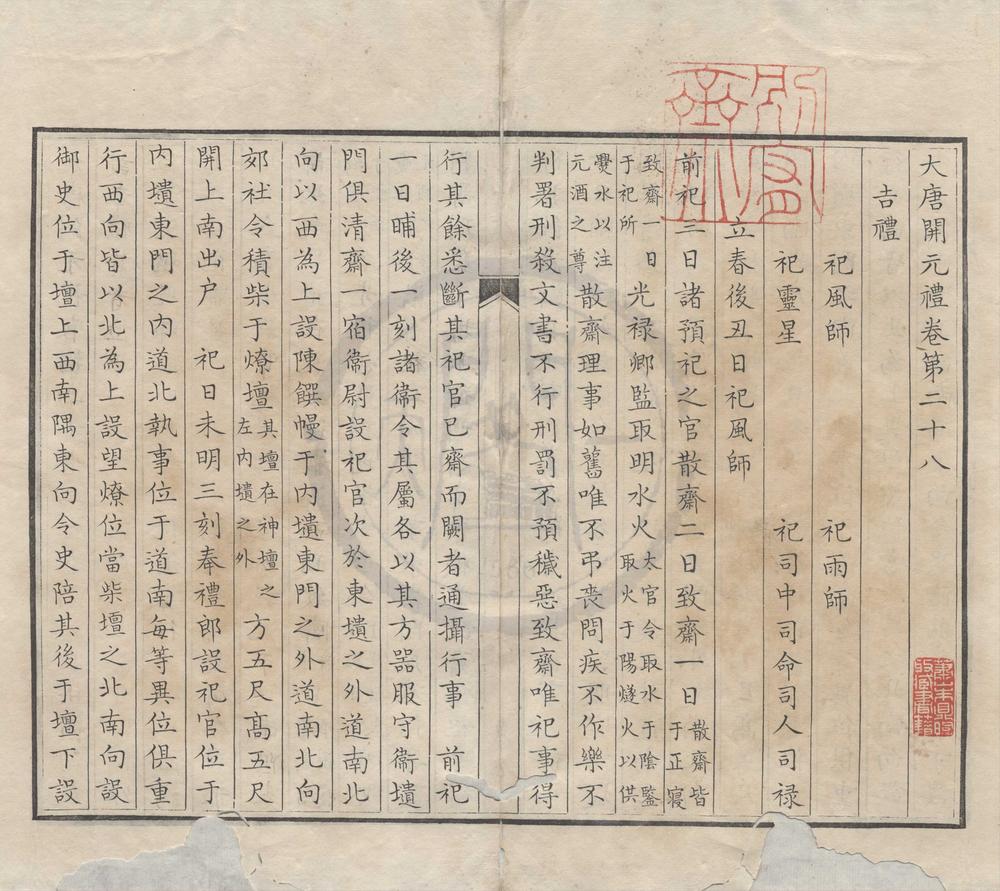 大唐開元禮卷第二十八
吉禮
祀風師 祀雨師
祀靈星 祀司中司命司人司祿
立春後丑日祀風師
前祀三日諸預祀之官散齋二日致齋一日散齋皆于正寢
致齋一日于祀所光祿卿監取明水火太官令取水于陰鑒取火于陽燧火以供
爨水以注元酒之尊散齋理事如舊唯不弔丧問疾不作樂不
判署刑殺文書不行刑罰不預穢惡致齋唯祀事得
行其餘悉斷其祀官已齋而闕者通攝行事 前祀
一日晡後一刻諸衛令其屬各以其方器服守衛壝
門俱清齋一宿衛尉設祀官次於東壝之外道南北
向以西為上設陳饌幔于内壝東門之外道南北向
郊社令積柴于燎壇其壇在神壇之左内壝之外方五尺髙五尺
開上南出户 祀日未明三刻奉禮郎設祀官位于
内壝東門之内道北執事位于道南每等異位俱重
行西向皆以北為上設望燎位當柴壇之北南向設
御史位于壇上西南隅東向令史陪其後于壇下設